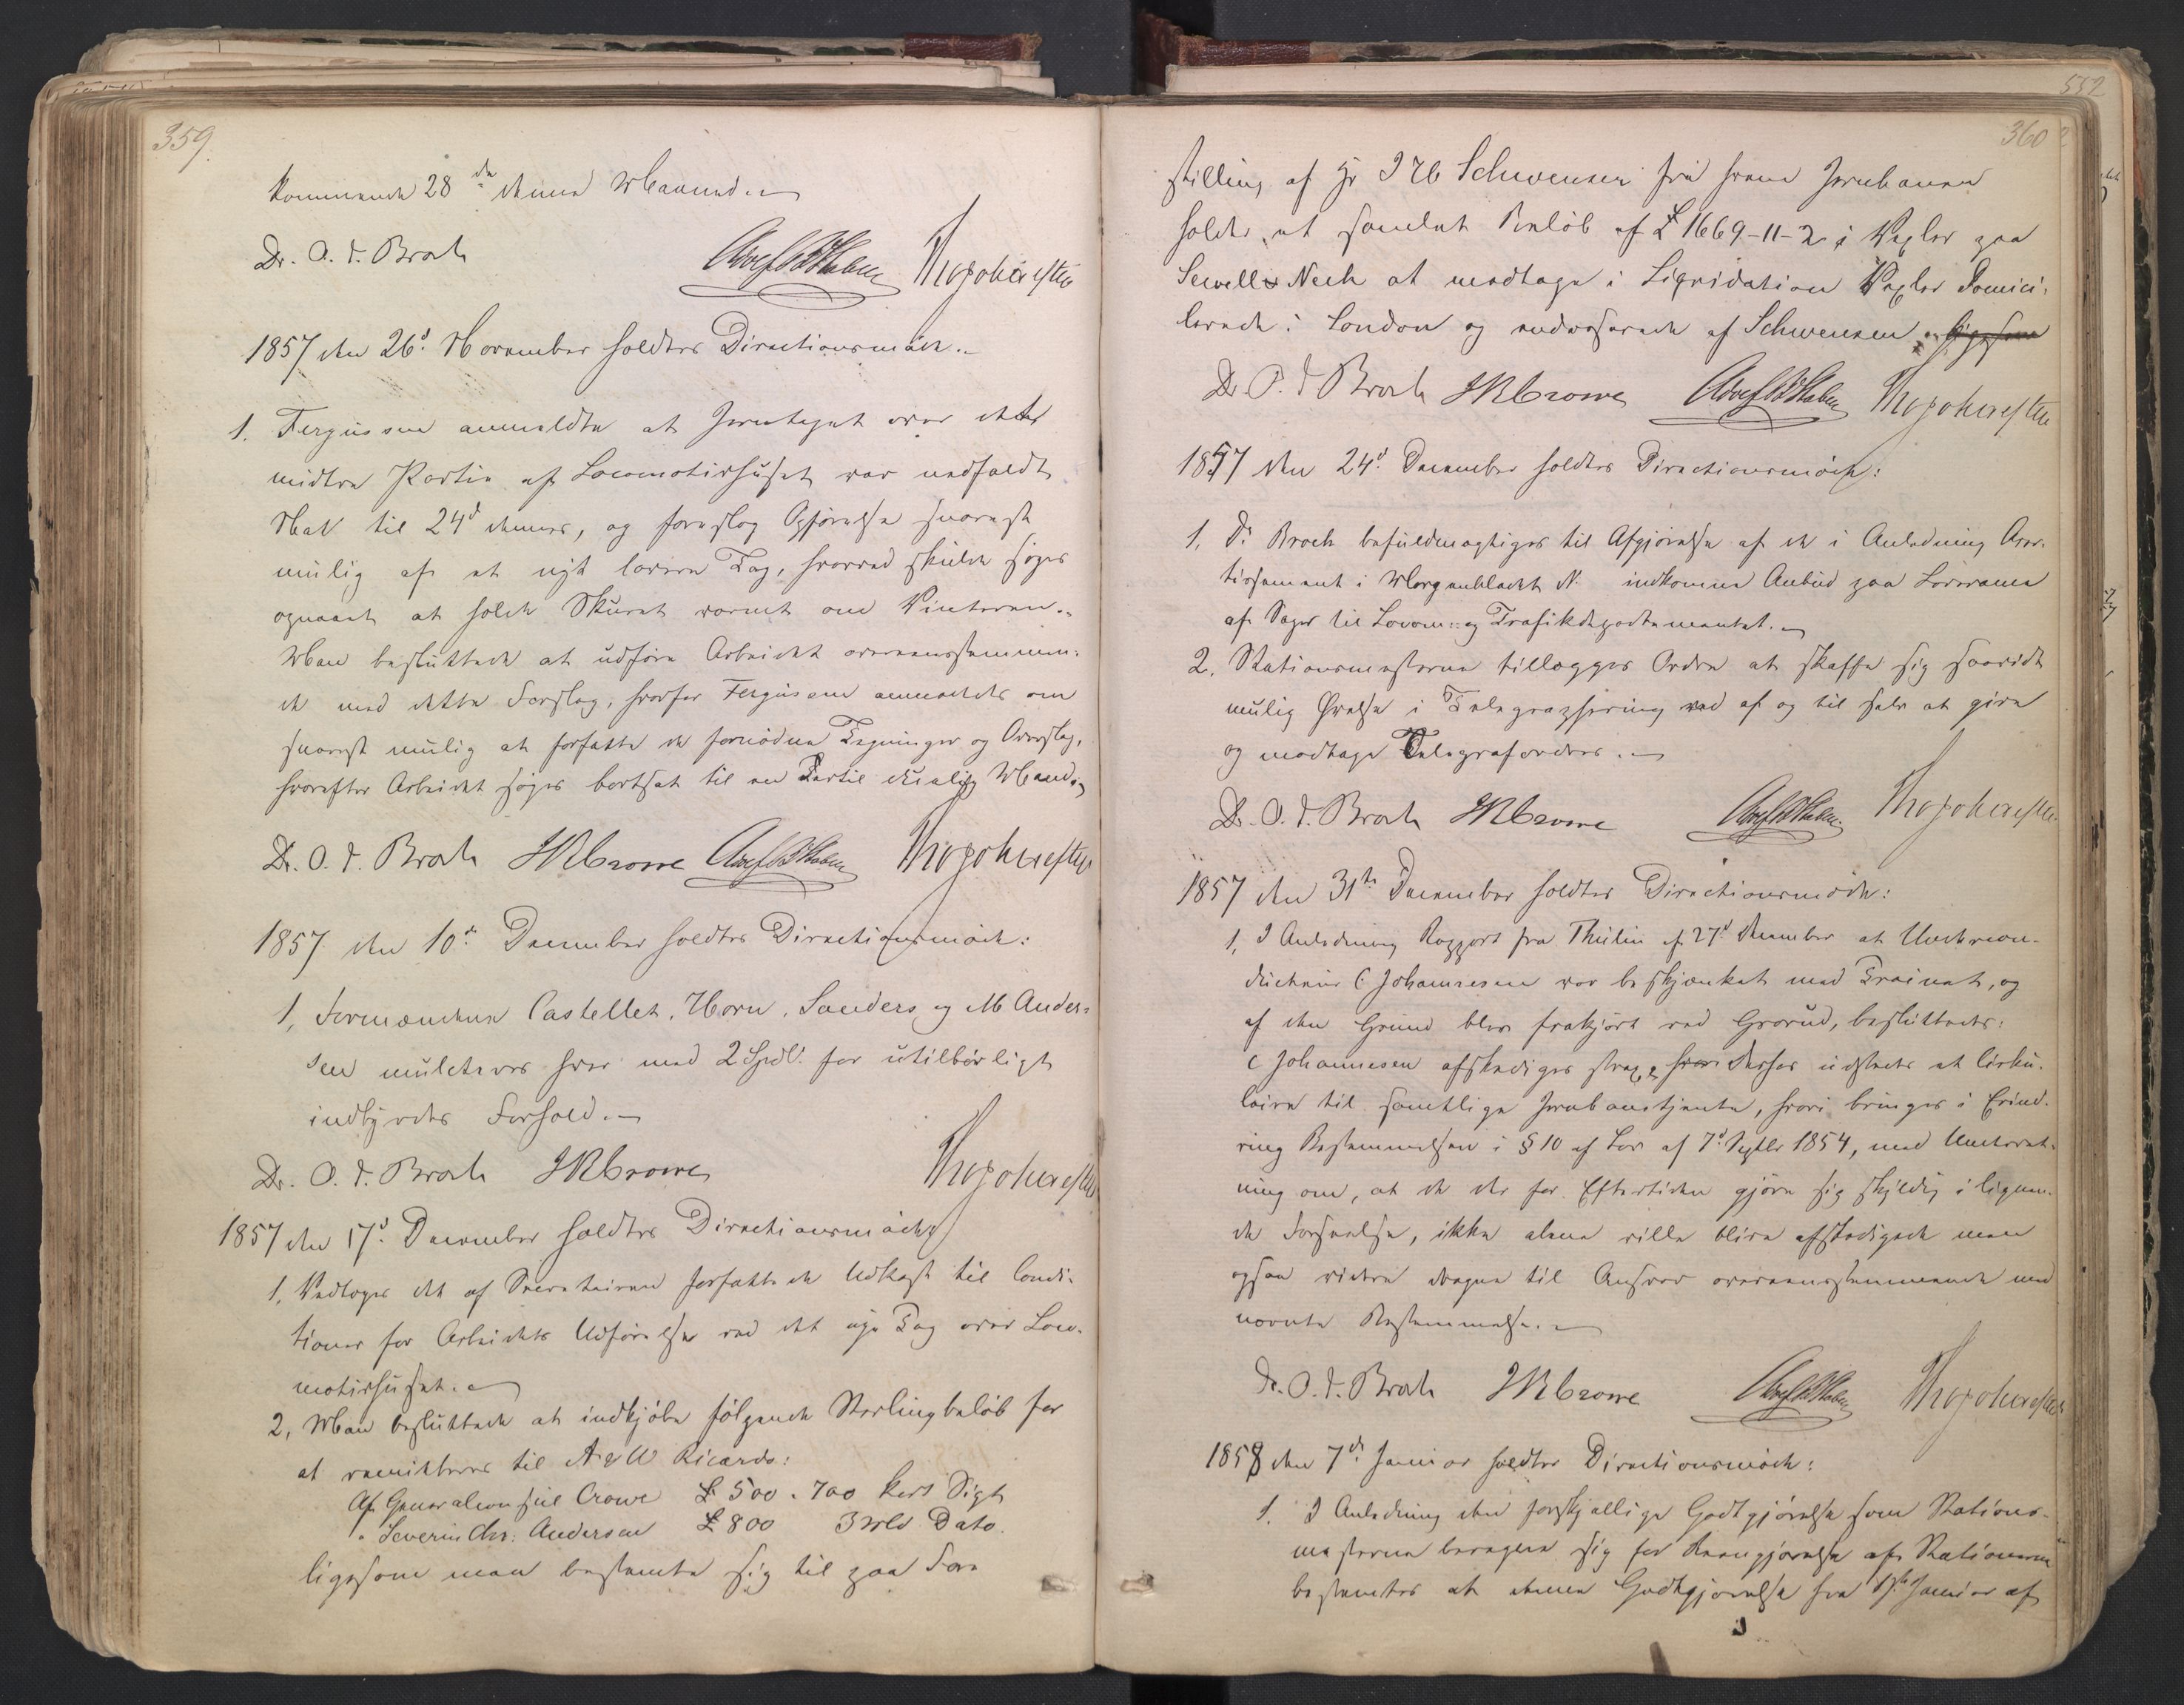 359.
kommende 28de denne Maaned.
Dr. O. J. Broch
1857 den 26d November holdtes Directionsmöde.
1. Fergusson anmeldte at Jerntaget over dette
midtre Partie af Locomotivhuset var nedfaldt
Nat til 24d dennes, og foreslog Opförelse snarest
mulig af et nyt lavere Tag, hvorved skulde söges
opnaaet at holde Skuret varmt om Vinteren.
Man besluttede at udföre Arbeidet overeensstemmen-
de med dette Forslag, hvorfor Fergusson anmodedes om
snarest mulig at forfatte de fornödne Tegninger og Overslag,
hvorefter Arbeidet söges bortsat til en Partie duelig Mænd.
Dr. O. J. Broch JRCrowe
1857 den 10d December holdtes Directionsmöde:
1, Formændene Castellet, Horn, Sanders og M Ander-
sen mulcteres hver med 2 Spdl. for utilbörligt
indbyrdes Forhold.
Dr. O. J. Broch JRCrowe
1857 den 17d December holdtes Directionsmöde
1, Vedtoges det af Secretairen forfattede Udkast til Condi-
tioner for Arbeidets Udförelse ved det nye Tag over Loco-
motivhuset.
2, Man besluttede at indkjöbe fölgende Sterlingbelöb for
at remitteres til A & W Ricardo:
Af Generalconsul Crowe £ 500 . 700 kort Sigt
" Severin Chr: Andersen £ 800 3 Md Dato.
ligesom man bestemte sig til paa Fore
552
360
stilling af Hr I H Schwensen fra hvem Jernbanen
holder et samlet Belöb af £ 1669-11-2 i Vexler paa
Sewell & Neck at modtage i Liqvidation Vexler domici-
lerede i London og endosserede af Schwensen ligesom
Dr. O. J Broch JRCrowe
1857 den 24d December holdtes Directionsmöde:
1. Dr. Broch befuldmægtiges til Afgjörelse af de i Anledning Aver-
tissement i Morgenbladet N. indkomne Anbud paa Leverance
af Sager til Locom:- og Trafikdepartementet.
2. Stationsmesterne tillægges Ordre at skaffe sig saavidt
mulig Övelse i Telegraphering ved af og til selv at give
og modtage Telegrafordres.
Dr. O. J. Broch JRCrowe
1857 den 31te December holdtes Directionsmöde:
1, I Anledning Rapport fra Thulin af 27d December at Undercon-
ducteur C Johannesen var beskjænket med Trainet, og
af den Grund blev frakjört ved Grorud, besluttedes:
C Johannesen afskediges strax, hvor derfor udstedes et Cirku-
laire til samtlige Jernbanetjente, hvori bringes i Erind-
ring Bestemmelsen i § 10 af Lov af 7d Septbr 1854, med Underret-
ning om, at de der for Eftertiden gjöre sig skyldig i lignen-
de Forseelse, ikke alene ville blive afskedigede men
ogsaa videre dragne til Ansvar overeensstemmende med
nævnte Bestemmelse.
Dr. O. J. Broch JRCrowe
1858 den 7de Januar holdtes Directionsmöde:
1. I Anledning den forskjellige Godtgjörelse som Stations-
mesterne beregne sig for Reengjörelse af Stationerne
bestemtes at denne Godtgjörelse fra 1ste Januar af